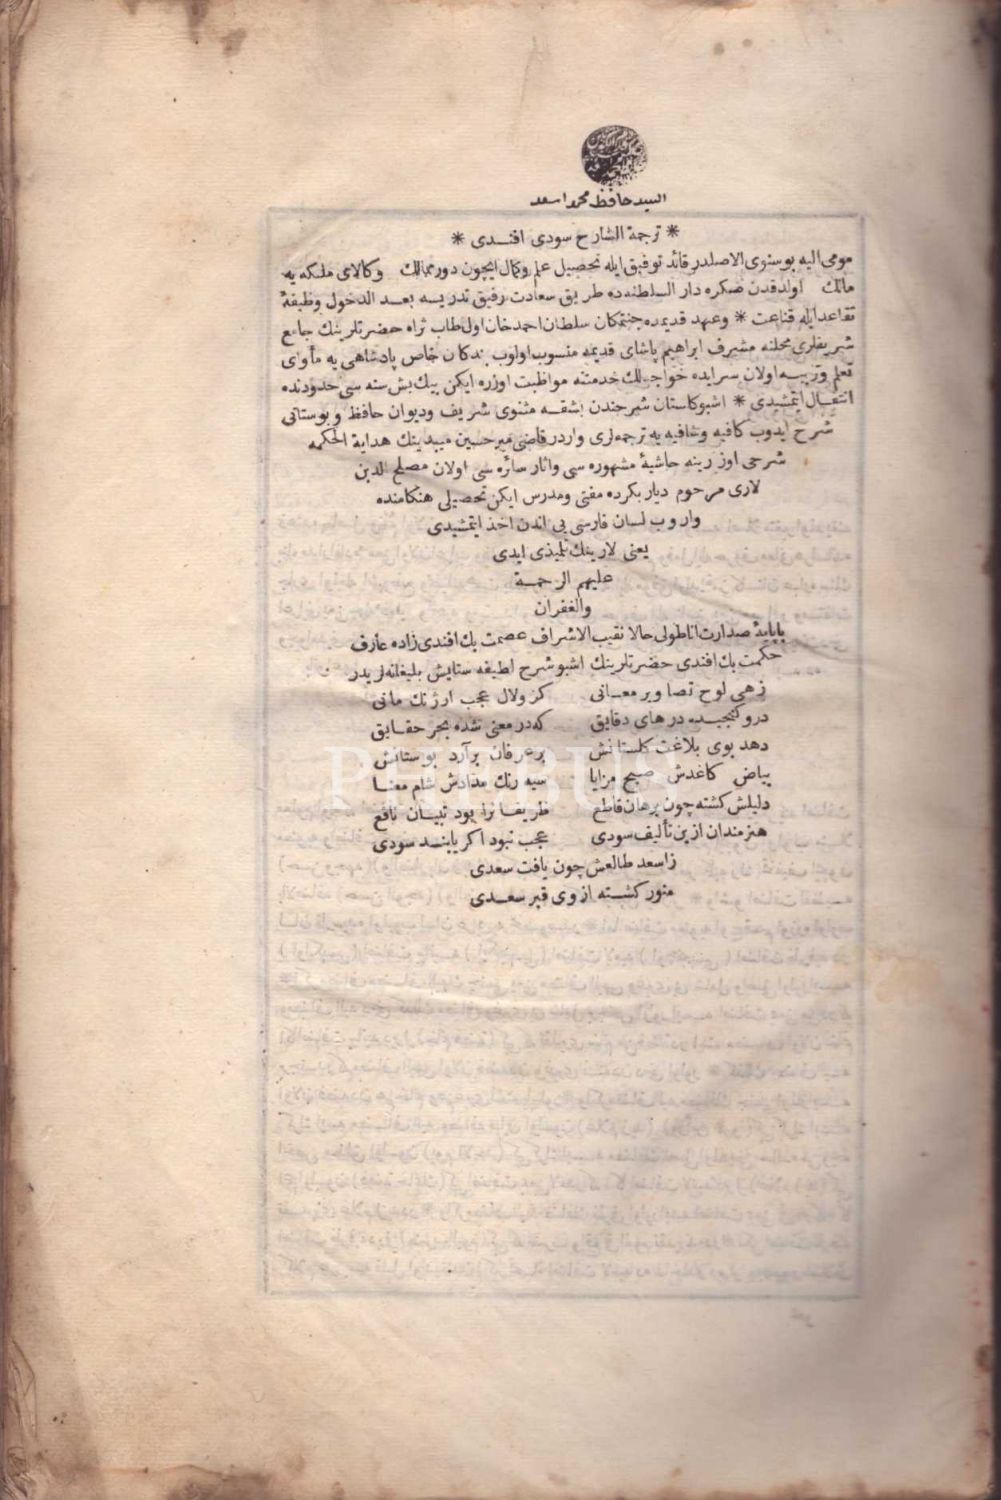 السيد حافظ محمد اسعد
* ترجمة الشارح سودى افندى *
مومى اليه بوسنوى الاصلدر قائد توفيق ايله تحصيل علم وكمال ايچون دور ممالك وكالاى ملكه يه
مالك اولدقدن صكره دار السلطنه ده طريق سعادت رفيق تدريسه بعد الدخول وظيفهٔ
تقاعد ايله قناعت * وعهد قديمده جنتمكان سلطان احمد خان اول طاب ثراه حضرتلرينك جامع
شريفلرى محلنه مشرف ابراهيم پاشاى قديمه منسوب اولوب بندكان خاص پادشاهى يه مأواى
تعلم وتربيه اولان سرايده خواجه لك خدمتنه مواظبت اوزره ايكن بيك بش سنه سى حدودنده
انتقال ايتمشيدى * اشبو كلستان شرحندن بشقه مثنوى شريف وديوان حافظ وبوستانى
شرح ايدوب كافيه وشافيه يه ترجمه لرى واردر قاضى مير حسين ميبدينك هداية الحكمه
شرحى اوزرينه حاشيهٔ مشهوره سى وآثار سائره سى اولان مصلح الدين
لارى مرحوم ديار بكرده مفتى ومدرس ايكن تحصيلى هنكامنده
واروب لسان فارسى يى اندن اخذ ايتمشيدى
يعنى لارينك تلميذى ايدى
عليهم الرحمة
والغفران
باپايهٔ صدارت اناطولى حالا نقيب الاشراف عصمت بك افندى زاده عارف
حكمت بك افندى حضرتلرينك اشبو شرح لطيفه ستايش بليغانه لريدر
زهى لوح تصاوير معانى كزو لال عجب ارژنك مانى
درو كنجيده درهاى دقايق كه در معنى شده بحر حقايق
دهد بوى بلاغت كلستانش بر عرفان برآرد بوستانش
بياض كاغدش صبح مزايا سيه رنك مدادش شام معنا
دليلش كشته چون برهان قاطع ظريفانرا بود تبيان نافع
هنرمندان ازين تأليف سودى عجب نبود اكر يابند سودى
ز اسعد طالعش چون يافت سعدى
منور كشته از وى قبر سعدى
PHEBUS